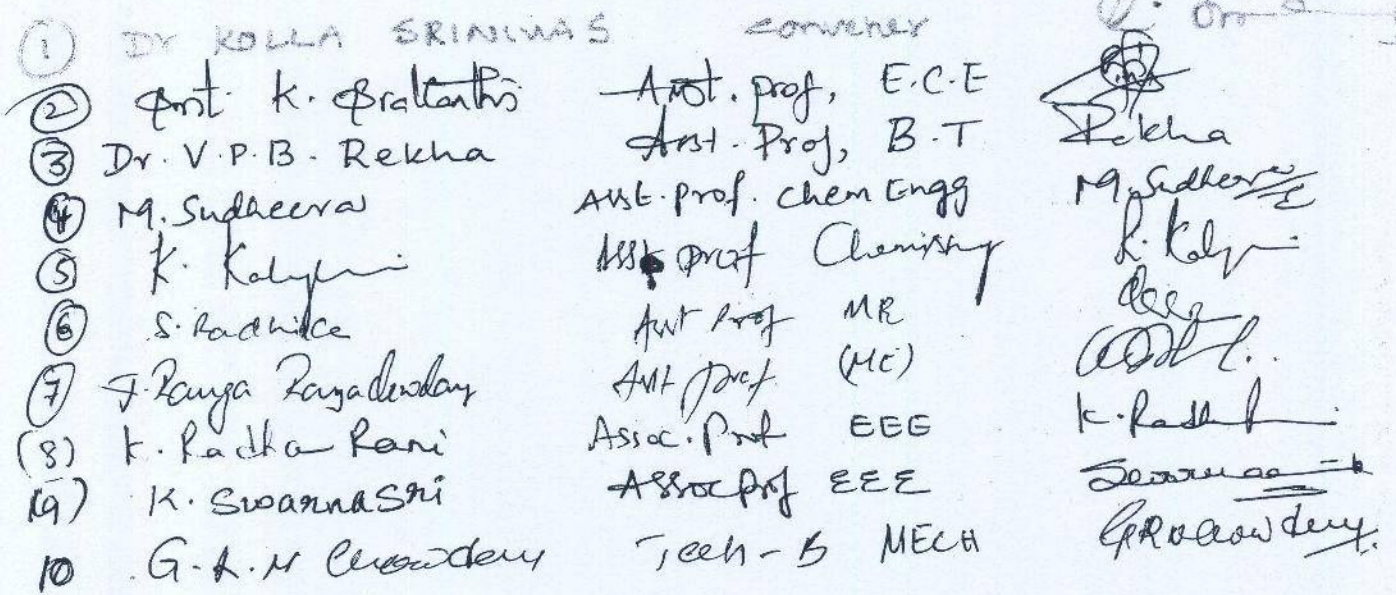 ① Dr KOLLA SRINIVAS convener
② K. Asst. prof, E.C.E
③ Dr. V.P.B. Rekha Asst. Prof, B.T Rekha
④ M. Sudheera Asst. prof. Chem Engg M. Sudheera
⑤ K. Kalyani Asst prof Chemistry K. Kalyani
⑥ S. Radhika Asst Prof
⑦ Ranga Asst prof (ME)
(8) K. Radha Rani Assoc. Prof EEE K. Radha
(9) K. SwarnaSri Assoc prof EEE
10 G.R.N Chowdery Tech-B MECH GRNChowdery